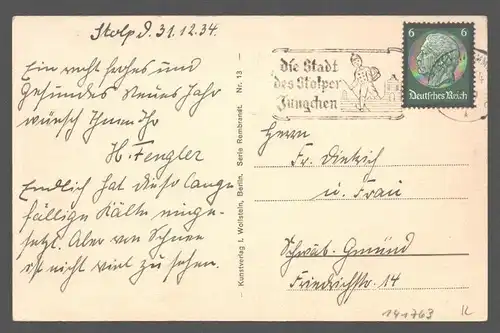 Stolp d. 31.12.34.
Ein recht frohes und
Gesundes Neues Jahr
wünscht Ihnen Ihr
H. Fengler
Endlich hat diese lange
fällige Kälte einge-
setzt. Aber von Schnee
ist nicht viel zu sehen.
Kunstverlag J. Wollstein, Berlin. Serie Rembrandt. Nr. 13
die Stadt
des Stolper
Jüngchen
6 6
Deutsches Reich
Herrn
Fr. Dietrich
u. Frau
Schwäb. Gmünd
Friedrichstr. 14
141763